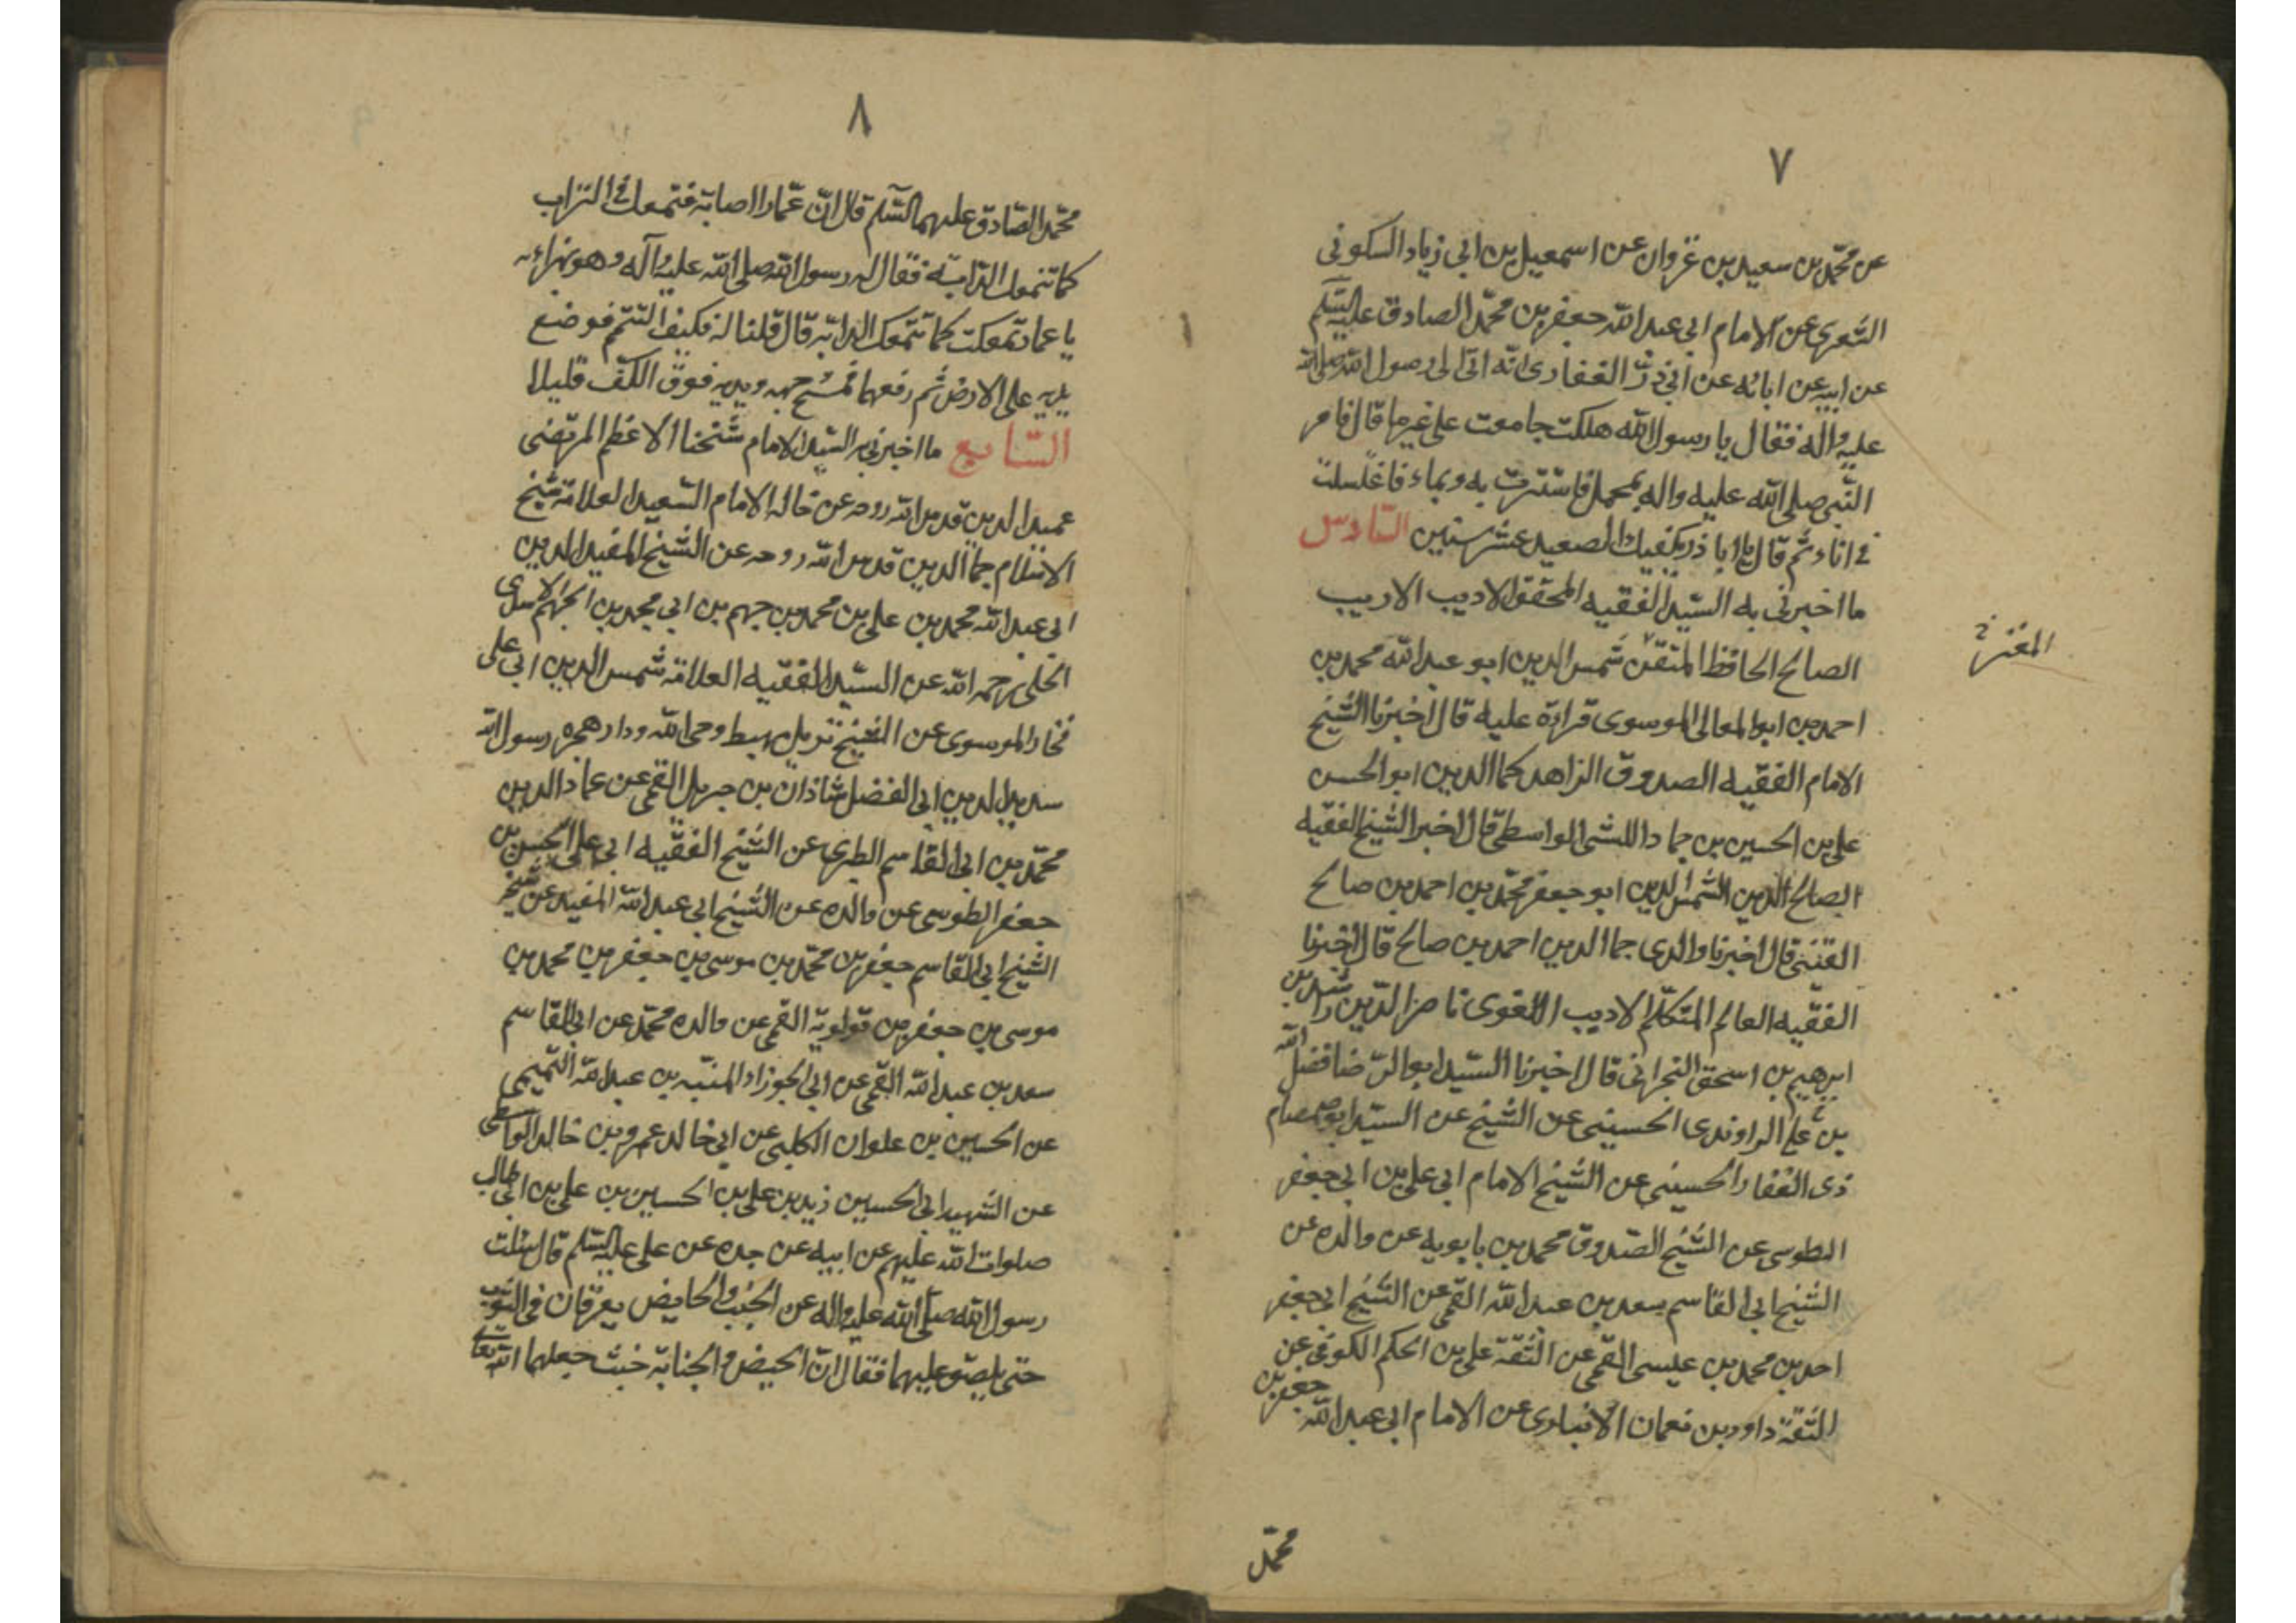 ٧
عن محمّد بن سعيد بن غزوان عن اسمعيل بن ابى زياد السكونى
الشعيرى عن الامام ابى عبد الله جعفر بن محمّد الصادق عليه السّلم
عن ابيه عن ابائه عن ابى ذرّ الغفارى انّه اتى الى رسول الله صلى الله
عليه واله فقال يا رسول الله هلكت جامعت على غير ما قال فامر
النّبى صلى الله عليه واله بمحمل فاستترت به وبماء فاغتسلت
فى اناء ثم قال يا ابا ذر يكفيك الصعيد عشر سنين السّادس
ما اخبرنى به السّيد الفقيه المحقق الاديب الاريب
الصالح الحافظ المتقن شمس الدين ابو عبد الله محمد بن
المغتر
احمد بن ابو المعالى الموسوى قراءة عليه قال اخبرنا الشيخ
الامام الفقيه الصدوق الزاهد كمال الدين ابو الحسن
على بن الحسين بن حماد الليثى الواسطى قال اخبر الشيخ الفقيه
الصالح الدين الشمس الدين ابو جعفر محمّد بن احمد بن صالح
القسّينى قال اخبرنا والدى جمال الدين احمد بن صالح قال اخبرنا
الفقيه العالم المتكلّم الاديب اللغوى ناصر الدّين راشد بن
ابرهيم بن اسحق البحرانى قال اخبرنا السّيد ابو الرّضا فضل الله
بن على الراوندى الحسينى عن الشيخ عن السيّد ابو صمصام
ذى الفقار الحسينى عن الشيخ الامام ابى على بن ابى جعفر
الطوسى عن الشيخ الصّدوق محمد بن بابويه عن والده عن
الشيخ ابى القاسم سعد بن عبد الله القمى عن الشيخ ابى جعفر
احد بن محمد بن عيسى القمى عن الثقة على بن الحكم الكوفى عن
الثقة داود بن نعمان الانبارى عن الامام ابى عبد الله جعفر بن
محمّد
٨
محمّد الصّادق عليهما السّلم قال انّ عمّارا اصابته فتمعك فى التراب
كما تتمعك الدابّة فقال له رسول الله صلى الله عليه وآله وهو يهزاء به
يا عمار تمعكت كما تتمعك الدابّة قال قلنا له فكيف التيمم فوضع
يديه على الارض ثم رفعهما فمسح وجهه ويديه فوق الكفّ قليلا
السّابع ما اخبرنى به السّيد الامام شيخنا الاعظم المرتضى
عميد الدين قدس الله روحه عن خاله الامام السّعيد العلامة شيخ
الاسلام جمال الدين قدس الله روحه عن الشيخ المفيد الدين
ابى عبد الله محمد بن على بن محمد بن جهم بن ابى محمد بن الجهم الاسدى
الحلى رحمه الله عن السّيد الفقيه العلامة شمس الدين ابى على
فخار الموسوى عن الشيخ نزيل مهبط وحى الله ودار هجرة رسول الله
سديد الدين ابى الفضل شاذان بن جبريل القمى عن عماد الدين
محمّد بن ابى القاسم الطبرى عن الشيخ الفقيه ابى على الحسن بن
جعفر الطوسى عن والده عن الشيخ ابى عبد الله المفيد عن شيخه
الشيخ ابى القاسم جعفر بن محمّد بن موسى بن جعفر بن محمد بن
موسى بن جعفر بن قولويه القمى عن والده محمّد عن ابى القاسم
سعد بن عبد الله القمى عن ابى الجوزاء المنبّه بن عبد الله التّميمى
عن الحسين بن علوان الكلبى عن ابى خالد عمرو بن خالد الواسطى
عن الشهيد ابى الحسين زيد بن على بن الحسين بن على بن ابى طالب
صلوات الله عليهم عن ابيه عن جده عن على عليه السّلم قال سئلت
رسول الله صلّى الله عليه واله عن الجنب والحايض يعرقان فى الثوب
حتى يلصق عليهما فقال انّ الحيض والجنابة خبث جعلهما الله تعالى